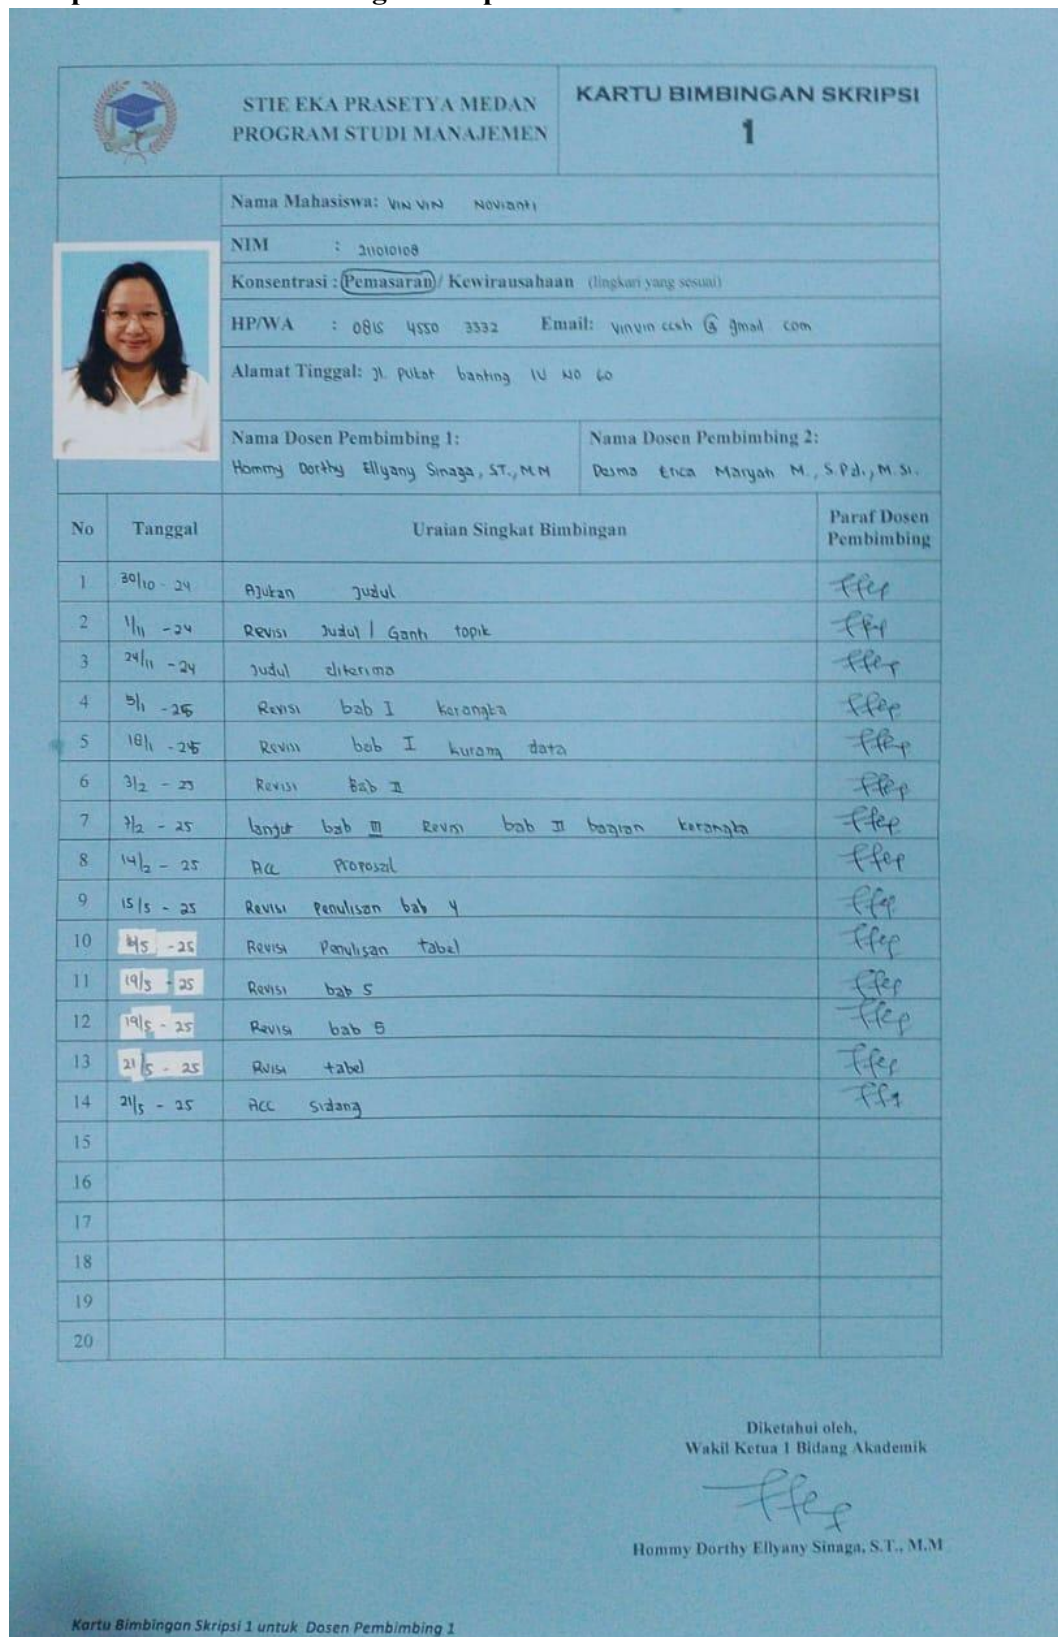 STIE EKA PRASETYA MEDAN
PROGRAM STUDI MANAJEMEN
KARTU BIMBINGAN SKRIPSI
1
Nama Mahasiswa: VIN VIN Novianti
NIM : 211010108
Konsentrasi : Pemasaran / Kewirausahaan (lingkari yang sesuai)
HP/WA : 0815 4550 3332 Email: vinvin @ gmail . com
Alamat Tinggal: Jl. Pukat banting IV NO 60
Nama Dosen Pembimbing 1:
Hommy Dorthy Ellyany Sinaga, ST., M.M
Nama Dosen Pembimbing 2:
Desma Erica Maryati M., S.Pd., M.Si.
No Tanggal Uraian Singkat Bimbingan Paraf Dosen Pembimbing
1 30/10 - 24 Ajukan Judul
2 1/11 - 24 Revisi Judul / Ganti topik
3 24/11 - 24 Judul diterima
4 5/1 - 25 Revisi bab I kerangka
5 18/1 - 25 Revisi bab I kurang data
6 3/2 - 25 Revisi Bab II
7 7/2 - 25 langut bab III Revisi bab II bagian kerangka
8 14/2 - 25 Acc Proposal
9 15/5 - 25 Revisi Penulisan bab 4
10 /5 - 25 Revisi Penulisan tabel
11 19/5 - 25 Revisi bab 5
12 19/5 - 25 Revisi bab 5
13 21/5 - 25 Rvisi tabel
14 21/5 - 25 ACC Sidang
15
16
17
18
19
20
Diketahui oleh,
Wakil Ketua 1 Bidang Akademik
Hommy Dorthy Ellyany Sinaga, S.T., M.M
Kartu Bimbingan Skripsi 1 untuk Dosen Pembimbing 1